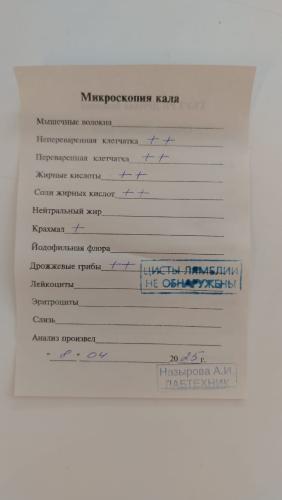 Микроскопия кала
Мышечные волокна
Непереваренная клетчатка ++
Переваренная клетчатка ++
Жирные кислоты ++
Соли жирных кислот ++
Нейтральный жир
Крахмал +
Йодофильная флора
Дрожжевые грибы ++
ЦИСТЫ ЛЯМБЛИИ
НЕ ОБНАРУЖЕНЫ
Лейкоциты
Эритроциты
Слизь
Анализ произвел
"8" 04 2025 г.
Назырова А.И.
ЛАБТЕХНИК